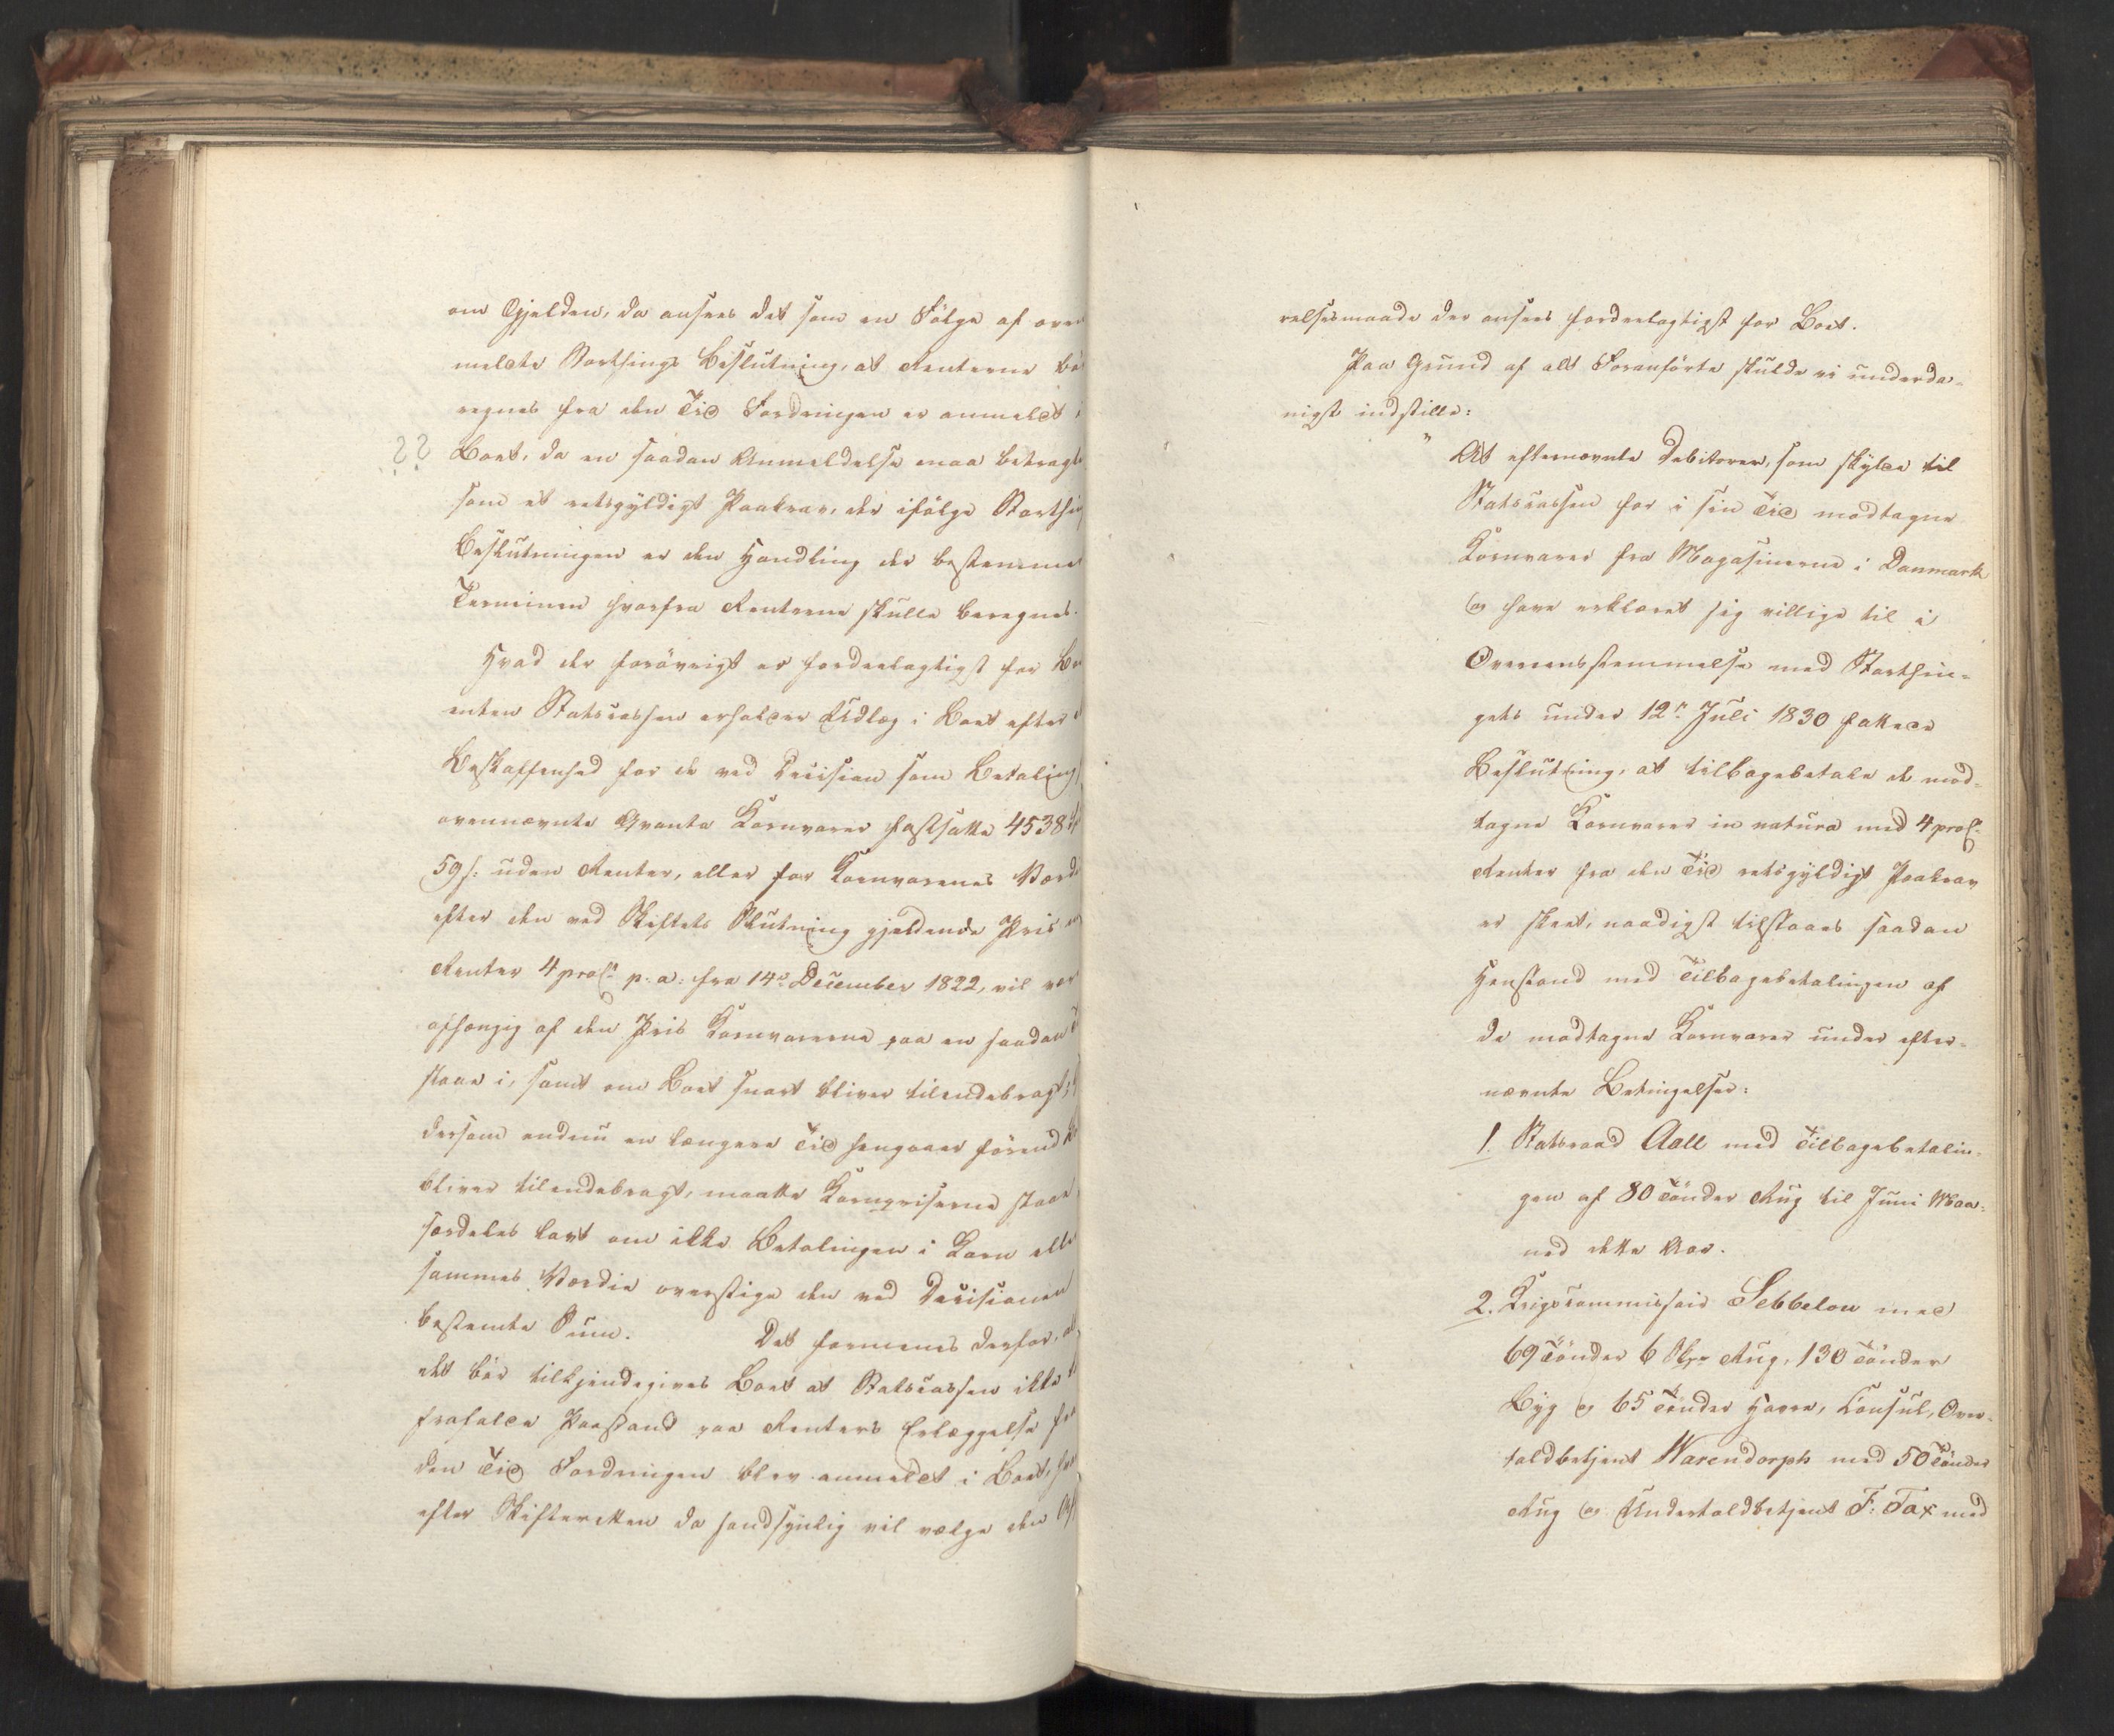 om Gjelden, da ansees det som en Følge af oven
meldte Storthings Beslutning, at Renterne bø
regnes fra den Tid Fordringen er anmeldt i
?? Boet, da en saadan Anmeldelse maa betragte
som et retsgyldigt Paakrav, der ifølge Storthin
Beslutningen er den Handling der bestemme
Terminen hvorfra Renterne skulle beregnes.
Hvad der forøvrigt er fordeelagtigst for Bo
enten Statscassen erholder Udlæg i Boet efter
Beskaffenhed for de ved Decision som Betaling
ovennævnte Qvanta Kornvarer fastsatte 4538
59 s: uden Renter, eller for Kornvarenes Værdi
efter den ved Skiftets Slutning gjeldende Priis
Renter 4 proC: p: a: fra 14de December 1822, vil vær
afhængig af den Priis Kornvarerne paa en saadan T
staae i, samt om Boet snart bliver tilendebragt,
dersom endnu en længere Tid hengaaer førend
bliver tilendebragt, maatte Kornpriserne staae
særdeles lavt om ikke Betalingen i Korn elle
sammes Værdie overstige den ved Decisionen
bestemte Sum. Det formenes derfor, at
det bør tilkjendegives Boet at Statscassen ikke
frafalder Paastand paa Renters Erlæggelse fra
den Tid Fordringen blev anmeldt i Boet, hvor
efter Skifteretten da sandsynlig vil vælge den
relsesmaade der ansees fordeelagtigst for Boet.
Paa Grund af alt Foranførte skulde vi underda-
nigst indstille:
"At efternævnte Debitorer, som skylde til
Statscassen for i sin Tid modtagne
Kornvarer fra Magasinerne i Danmark
og have erklæret sig villige til i
Overeensstemmelse med Storthin-
gets under 12te Juli 1830 fattede
Beslutning, at tilbagebetale de mod-
tagne Kornvarer in natura med 4 proC:
Renter fra den Tid retsgyldigt Paakrav
er skeet, naadigst tilstaaes saadan
Henstand med Tilbagebetalingen af
de modtagne Kornvarer under efter-
nævnte Betingelser:
1. Statsraad Aall med Tilbagebetalin-
gen af 80 Tønder Rug til Juni Maa-
ned dette Aar.
2. Krigscommissair Sebbelow med
69 Tønder 6 Skpr Rug, 130 Tønder
Byg og 65 Tønder Havre, Consul, Over-
toldbetjent Warendorph med 50 Tønder
Rug og Undertoldbetjent F: Fax med